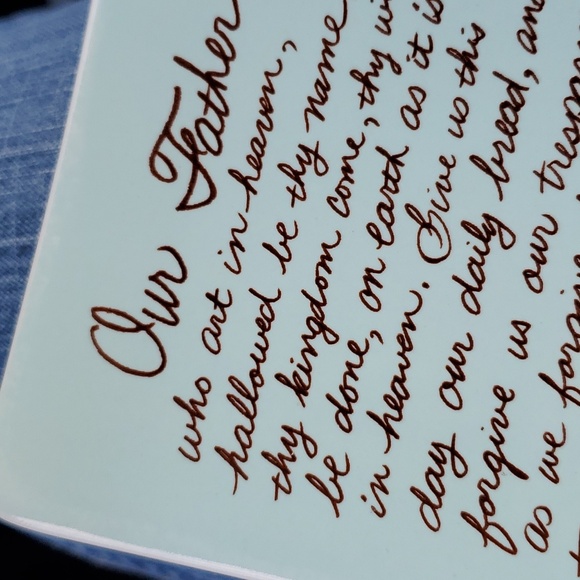 Our Father
who art in heaven,
hallowed be thy name
thy kingdom come, thy
be done, on earth as it is
in heaven. Give us this
day our daily bread, and
forgive us our
as we